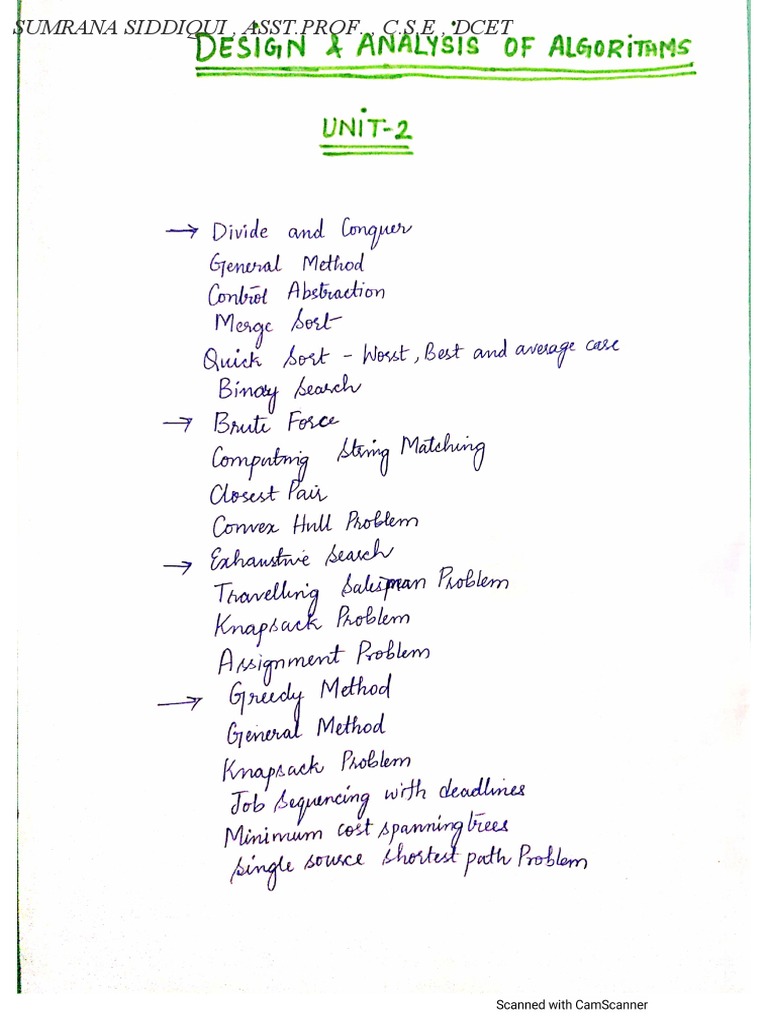 SUMRANA SIDDIQUI, ASST.PROF. , C.S.E , DCET
DESIGN & ANALYSIS OF ALGORITHMS
UNIT-2
→ Divide and Conquer
General Method
Control Abstraction
Merge Sort
Quick Sort - Worst, Best and average case
Binary Search
→ Brute Force
Computing String Matching
Closest Pair
Convex Hull Problem
→ Exhaustive Search
Travelling Salesman Problem
Knapsack Problem
Assignment Problem
→ Greedy Method
General Method
Knapsack Problem
Job Sequencing with deadlines
Minimum cost spanning trees
Single source shortest path Problem
Scanned with CamScanner